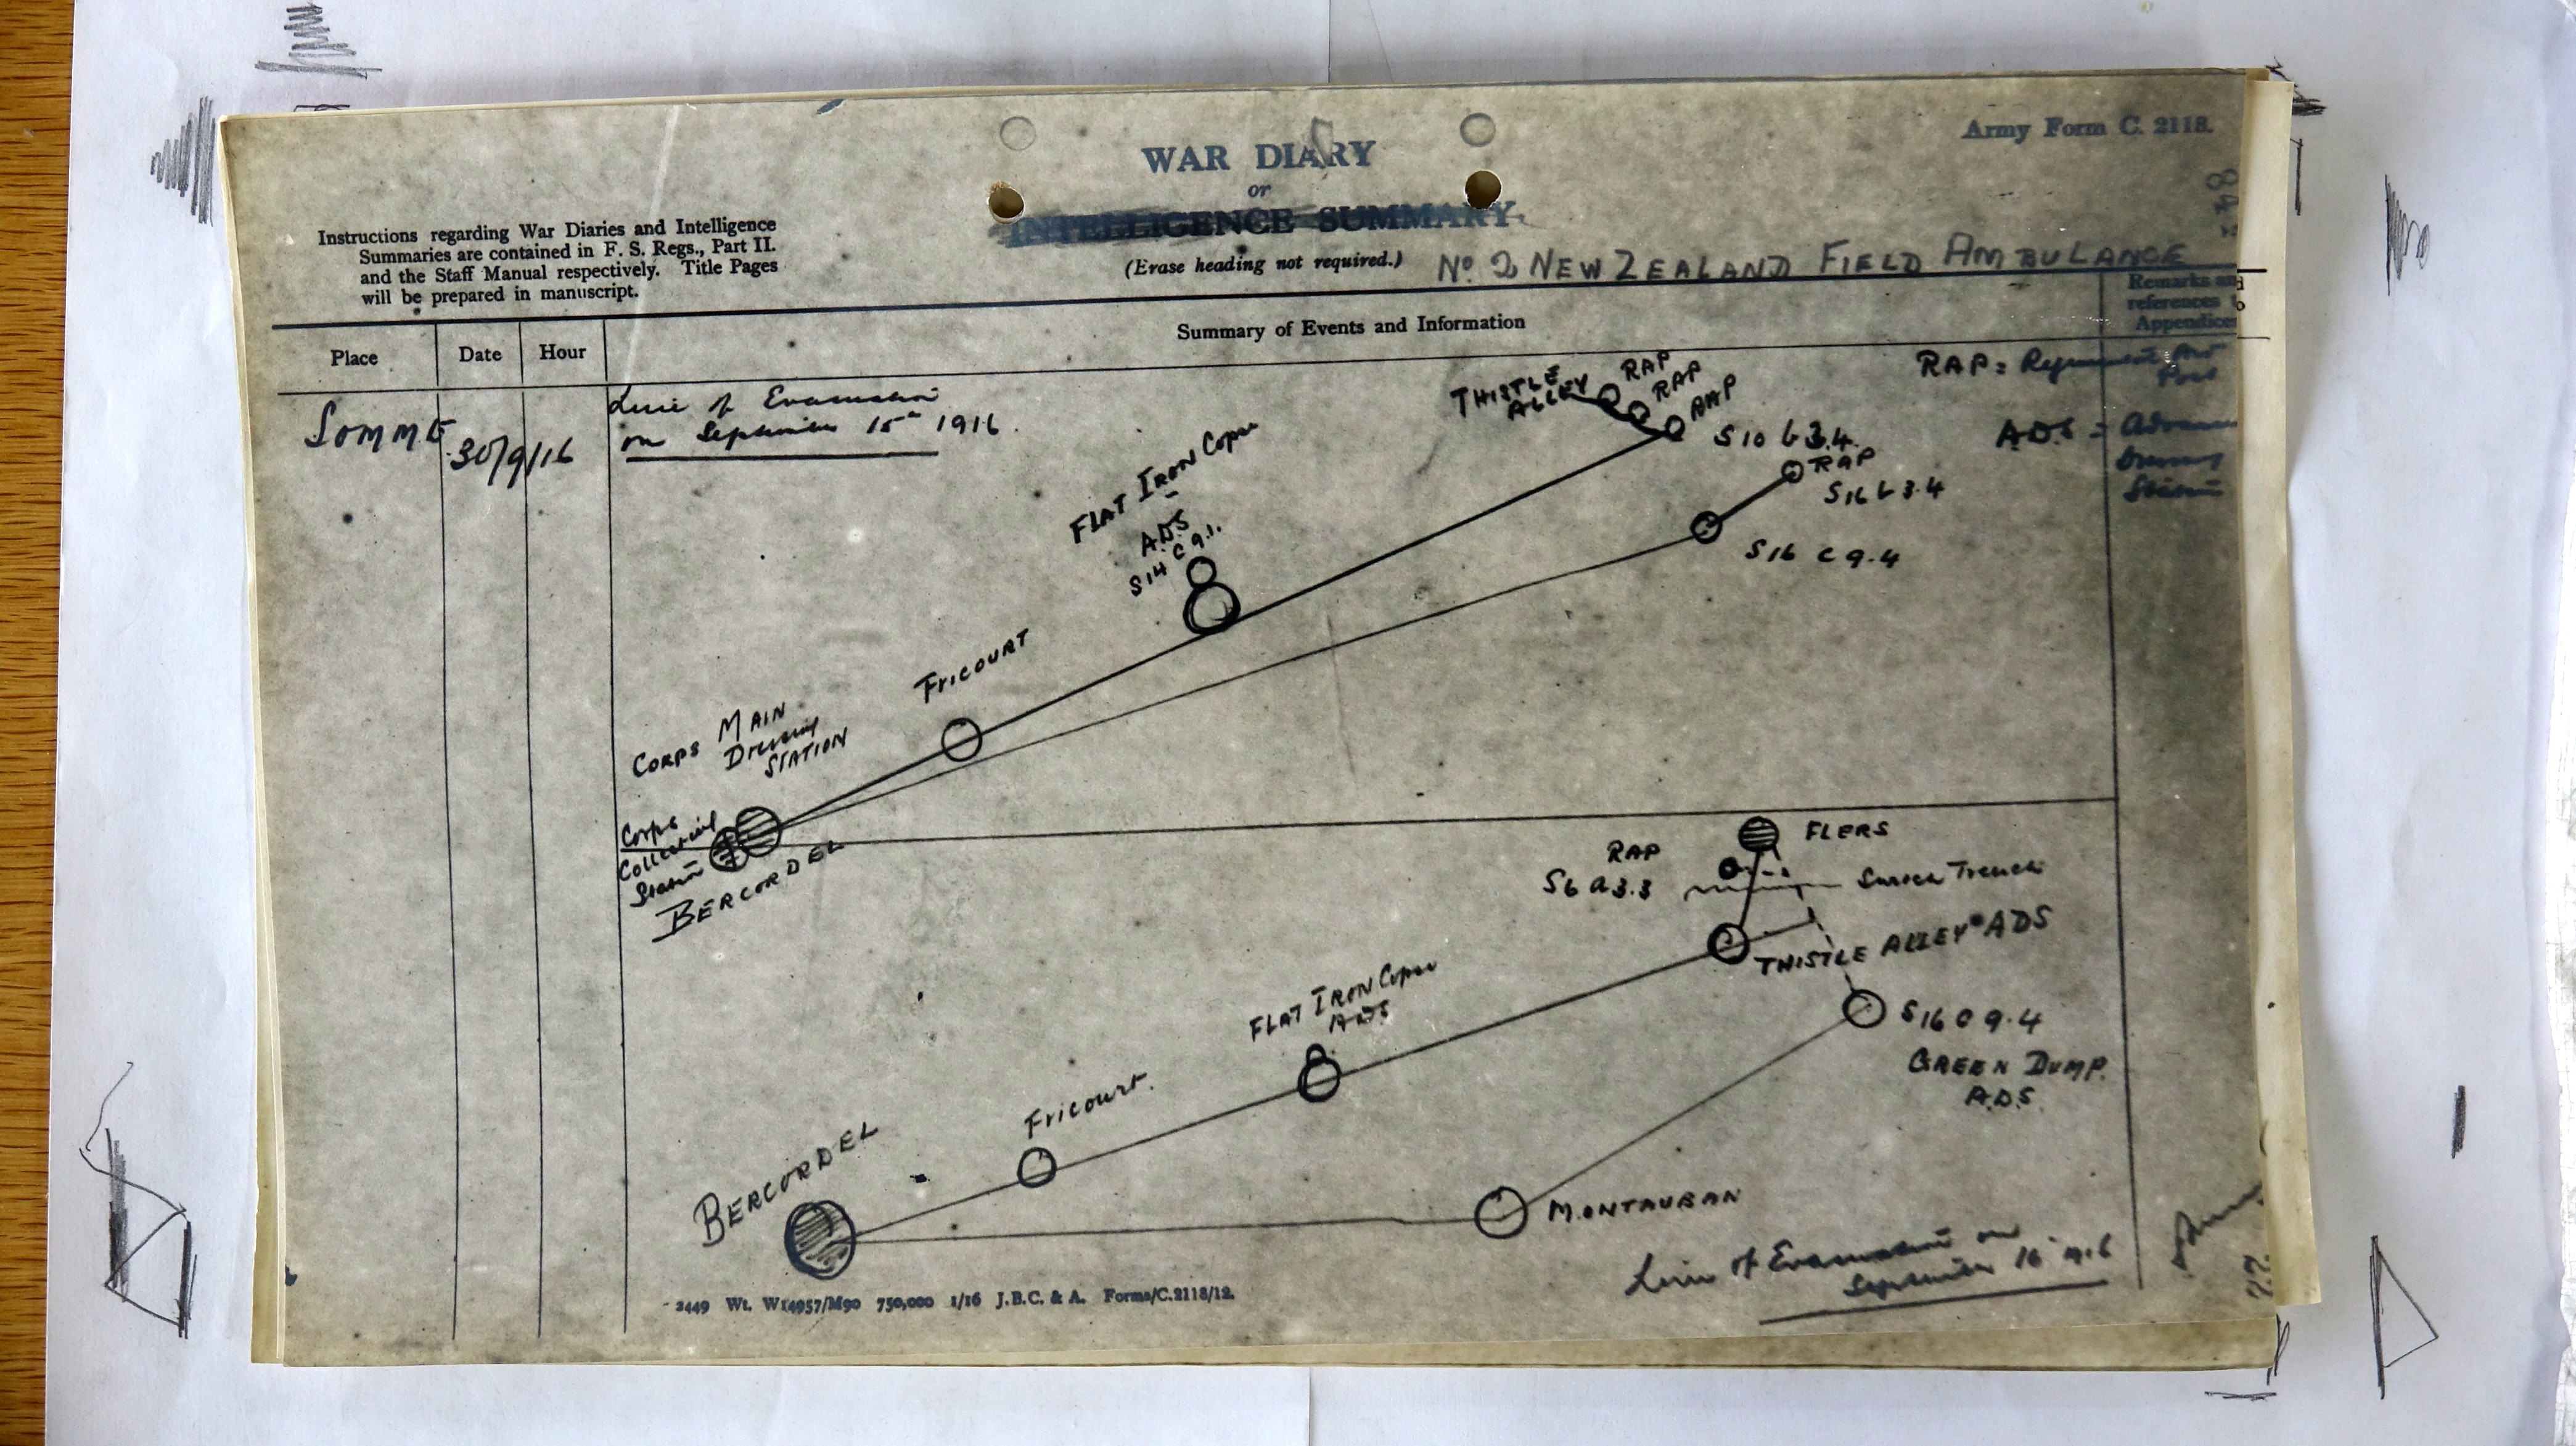 Army Form C. 2118.
WAR DIARY
or
INTELLIGENCE SUMMARY
(Erase heading not required.)
Instructions regarding War Diaries and Intelligence
Summaries are contained in F. S. Regs., Part II.
and the Staff Manual respectively. Title Pages
will be prepared in manuscript.
No 2 NEW ZEALAND FIELD AMBULANCE
Place
Date
Hour
Summary of Events and Information
Remarks and
references to
Appendices
SOMME
30/9/16
Line of Evacuation
on September 15th 1916.
THISTLE
ALLEY
RAP
RAP
RAP
S10 b 3.4.
RAP
S16 b 3.4
S16 c 9.4
RAP = Regimental Aid
Post
ADS =
Dressing
Station
FLAT IRON Copse
A.D.S
S14 c 9.1.
Fricourt
CORPS MAIN
Dressing
STATION
Corps
Collecting
Station
BERCORDEL
FLERS
RAP
S6 a 3.3
Trench
THISTLE ALLEY ADS
S16 c 9.4
GREEN DUMP.
A.D.S.
FLAT IRON Copse
ADS
Fricourt.
BERCORDEL
MONTAUBAN
Line of Evacuation on
September 16th 1916
2449 Wt. W14957/M90 750,000 1/16 J.B.C. & A. Forms/C.2118/12.